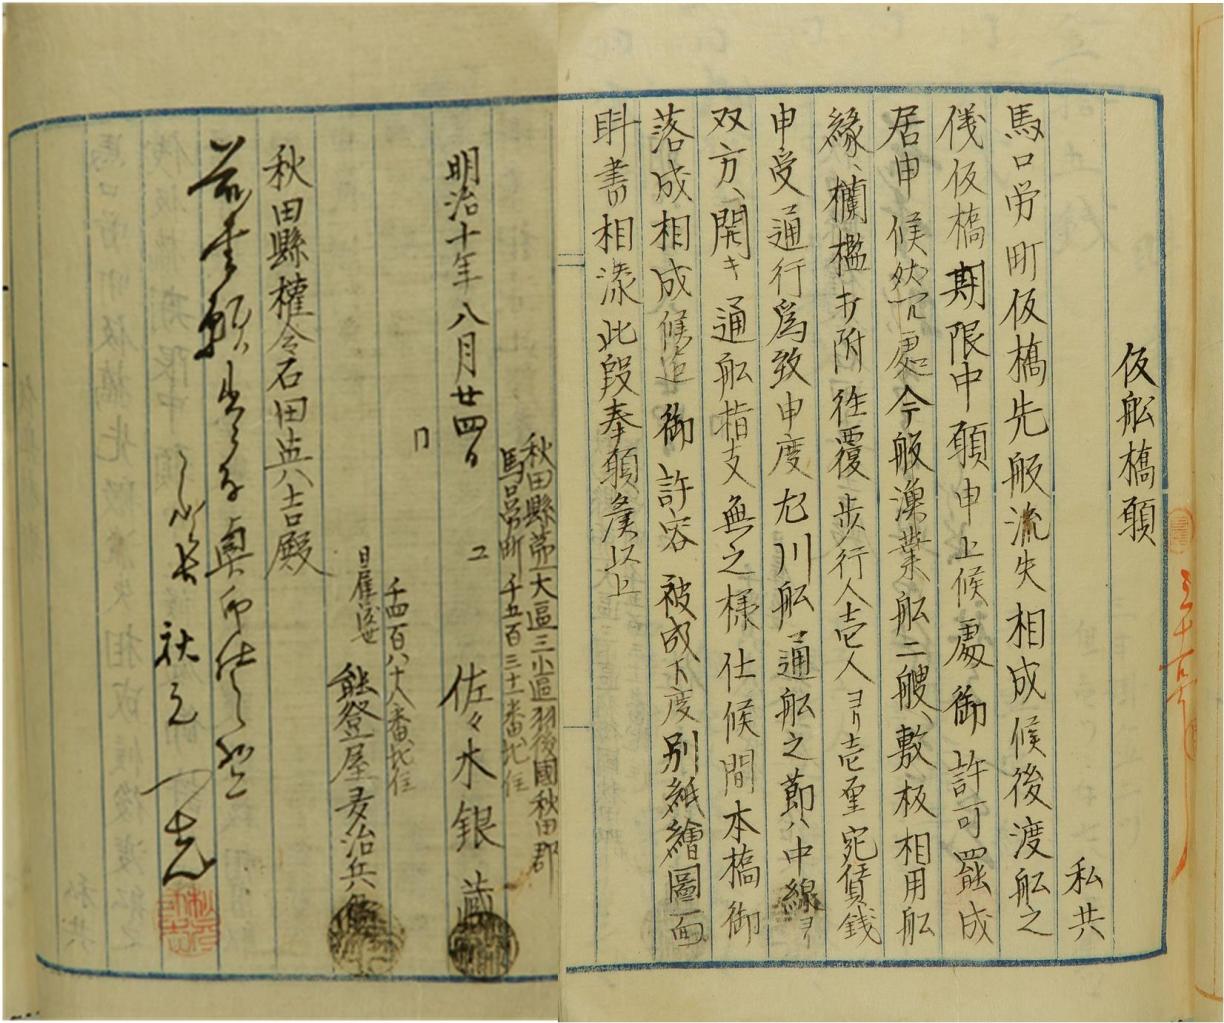 仮舩橋願
私共
馬口労町仮橋先般流失相成候後渡舩之
儀仮橋期限中願申上候處御許可罷成
居申候然ル處今般漁業舩二艘、敷板相用舩
縁、欄檻打附往覆歩行人壱人ヨリ壱厘宛賃銭
申受通行為致申度尤川舩通舩之節ハ中線ヨリ
双方、開キ通舩指支無之様仕候間本橋御
落成相成候迄御許容被成下度別紙繪圖面
相添此段奉願候以上
秋田縣第一大區三小區羽後國秋田郡
馬口労町千五百三十一番地住
明治十年八月廿四日 佐々木銀蔵
千四百八十八番地住
日雇渡世 能登屋
秋田縣權令石田英吉殿
前書願出ニ付奥印仕候也